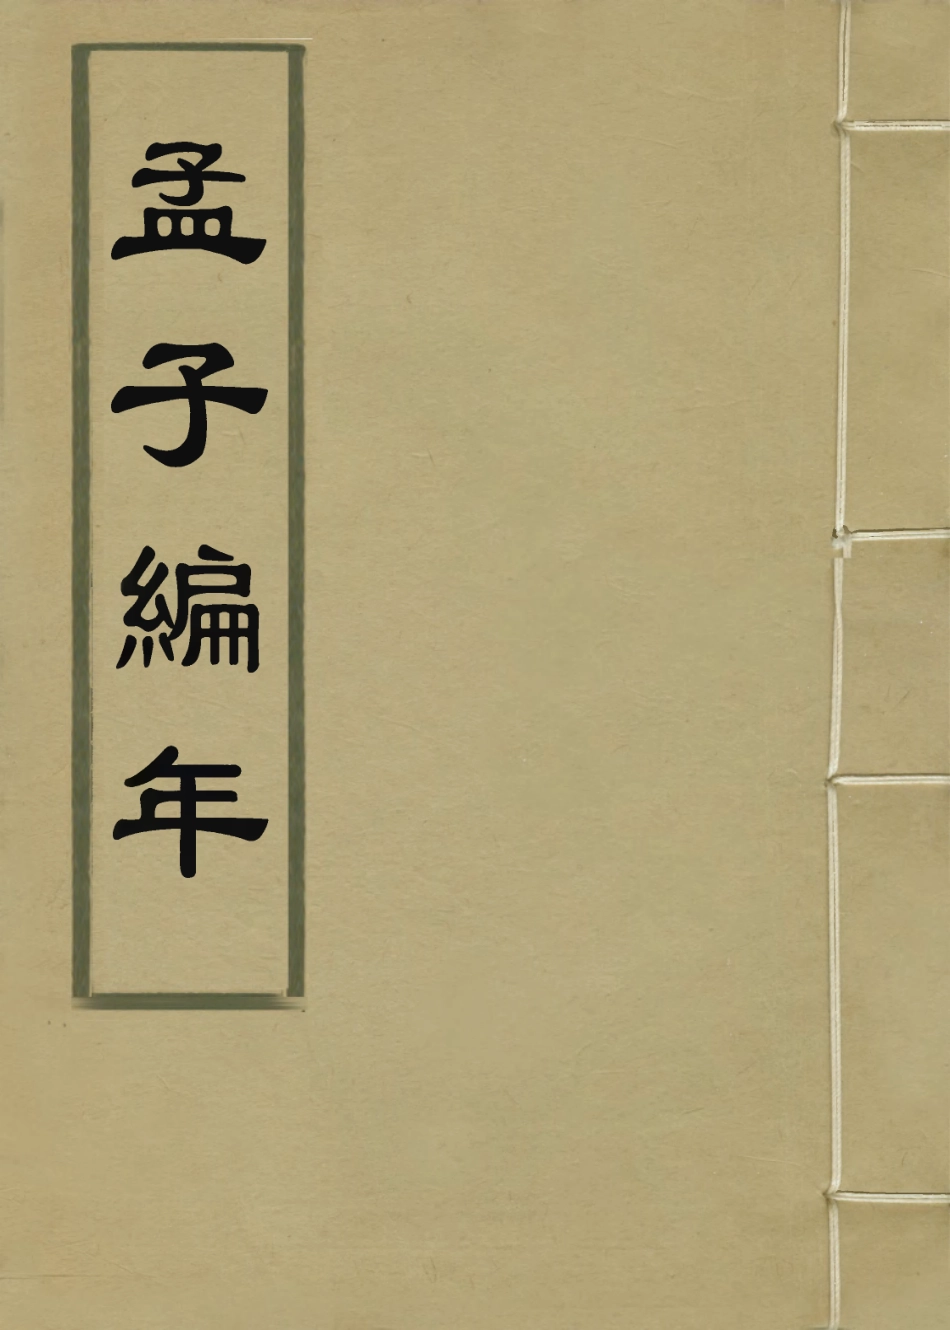 孟子編年